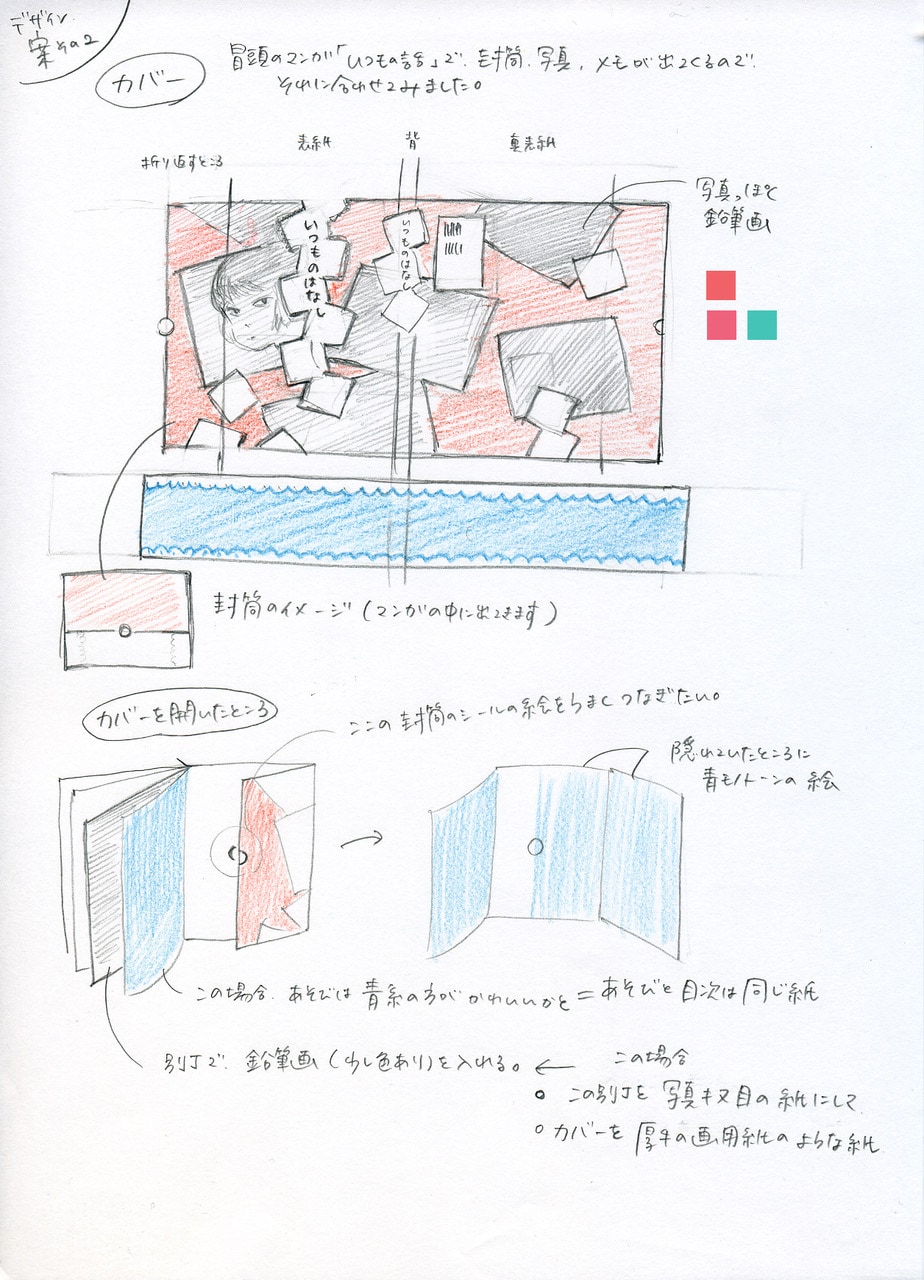 デザイン
案その2
カバー
冒頭のマンガ「いつもの話」で、封筒、写真、メモが出てくるので、
それに合わせてみました。
折り返すところ
表紙
背
裏表紙
いつものはなし
いつものはなし
写真っぽく
鉛筆画
封筒のイメージ(マンガの中に出てきます)
カバーを開いたところ
ここの封筒のシールの絵をうまくつなぎたい。
隠れていたところに
青モノトーンの絵
この場合、あそびは青系の方がかわいいかと=あそびと目次は同じ紙
別丁で、鉛筆画(少し色あり)を入れる。←
この場合
○ この別丁を写真キヌ目の紙にして
○ カバーを厚手の画用紙のような紙